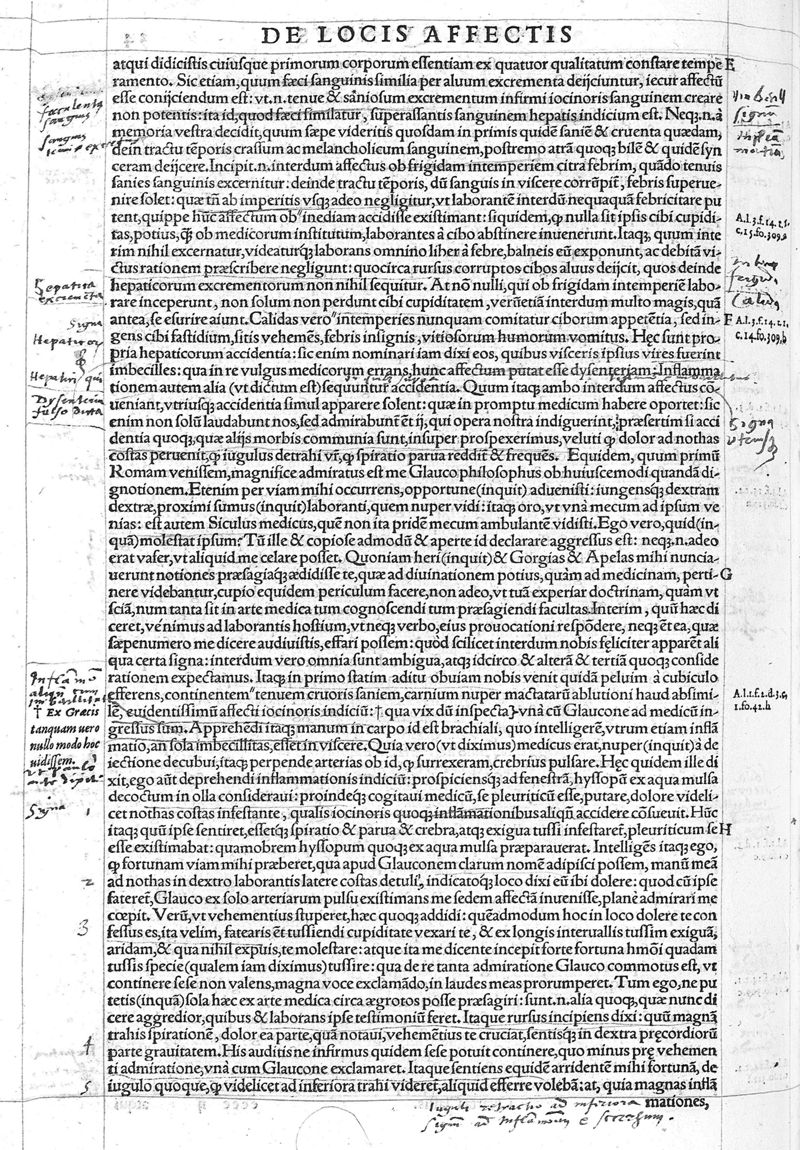 DE LOCIS AFFECTIS
atqui didicistis cuiusque primorum corporum essentiam ex quatuor qualitatum constare tempe E
ramento. Sic etiam, quum fæci sanguinis similia per aluum excrementa deijciuntur, iecur affectũ
esse conijciendum est: vt.n.tenue & sãniosum excrementum infirmi iocinoris sanguinem creare
non potentis: ita id, quod fæci similatur, superassantis sanguinem hepatis indicium est. Neqꝫ.n.à
memoria vestra decidit, quum sæpe videritis quosdam in primis quidẽ saniẽ & cruenta quædam,
dein tractu tẽporis crassum ac melancholicum sanguinem, postremo atrã quoqꝫ bilẽ & quidẽ syn
ceram deijcere. Incipit.n.interdum affectus ob frigidam intemperiem citra febrim, quãdo tenuis
sanies sanguinis excernitur: deinde tractu tẽporis, dũ sanguis in viscere corrũpit, febris superue-
nire solet: quæ tñ ab imperitis vsqꝫ adeo negligitur, vt laborantẽ interdũ nequaquã febricitare pu
tent, quippe hũc affectum ob" inediam accidisse existimant: siquidem, ꝙ nulla sit ipsis cibi cupidi-
tas, potius, ꝗ̃ ob medicorum institutum, laborantes à cibo abstinere inuenerunt. Itaqꝫ, quum inte
rim nihil excernatur, videaturqꝫ laborans omnino liber à febre, balneis eũ exponunt, ac debitã vi-
ctus rationem præscribere negligunt: quocirca rursus corruptos cibos aluus deijcit, quos deinde
hepaticorum excrementorum non nihil sequitur. At nõ nulli, qui ob frigidam intemperiẽ labo-
rare inceperunt, non solum non perdunt cibi cupiditatem, verũetiã interdum multo magis, quã
antea, se esurire aiunt. Calidas vero" intẽperies nunquam comitatur ciborum appetẽtia, sed in- F
gens cibi fastidium, sitis vehemẽs, febris insignis, vitiosorum humorum vomitus. Hęc sunt pro-
pria hepaticorum accidentia: sic enim nominari iam dixi eos, quibus visceris ipsius vires fuerint
imbecilles: qua in re vulgus medicorum errans, hunc affectum putat esse dysenteriam: Inflamma
tionem autem alia (vt dictum est) sequuntur accidentia. Quum itaqꝫ ambo interdum affectus cõ-
ueniant, vtriusqꝫ accidentia simul apparere solent: quæ in promptu medicum habere oportet: sic
enim non solũ laudabunt nos, sed admirabunẽ ẽt ij, qui opera nostra indiguerint, præsertim si acci
dentia quoqꝫ, quæ alijs morbis communia sunt, insuper prospexerimus, veluti ꝙ dolor ad nothas
costas peruenit, ꝙ iugulus detrahi vr̃, ꝙ spiratio parua reddit̃ & frequẽs. Equidem, quum primũ
Romam venissem, magnifice admiratus est me Glauco philosophus ob huiuscemodi quandã di-
gnotionem. Etenim per viam mihi occurrens, opportune (inquit) aduenisti: iungensqꝫ dextram
dextræ, proximi sumus (inquit) laboranti, quem nuper vidi: itaqꝫ oro, vt vnà mecum ad ipsum ve
nias: est autem Siculus medicus, quẽ non ita pridẽ mecum ambulantẽ vidisti. Ego vero, quid (in-
quã) molestat ipsum? Tũ ille & copiose admodũ & aperte id declarare aggressus est: neqꝫ.n.adeo
erat vafer, vt aliquid me celare posset. Quoniam heri (inquit) & Gorgias & Apelas mihi nuncia-
uerunt notiones præsagiaqꝫ ædidisse te, quæ ad diuinationem potius, quàm ad medicinam, perti- G
nere videbantur, cupio equidem periculum facere, non adeo, vt tuã experiar doctrinam, quàm vt
sciã, num tanta sit in arte medica tum cognoscendi tum præsagiendi facultas. Interim, quũ hæc di
ceret, vénimus ad laborantis hostium, vt neqꝫ verbo, eius prouocationi respõdere, neqꝫ ẽt ea, quæ
sæpenumero me dicere audiuistis, effari possem: quòd scilicet interdum nobis feliciter apparẽt ali
qua certa signa: interdum vero omnia sunt ambigua, atqꝫ idcirco & alterã & tertiã quoqꝫ conside
rationem expectamus. Itaqꝫ in primo statim aditu obuiam nobis venit quidã peluim à cubiculo
efferens, continentem" tenuem cruoris saniem, carnium nuper mactatarũ ablutioni haud absimi-
lẽ, euidentissimũ affecti iocinoris indiciũ: † qua vix dũ inspecta} vnà cũ Glaucone ad medicũ in-
gressus sum. Apprehẽdi itaqꝫ manum in carpo id est brachiali, quo intelligerẽ, vtrum etiam inflã
matio, an sola imbecillitas, esset in viscere. Quia vero (vt diximus) medicus erat, nuper (inquit) à de
iectione decubui, itaqꝫ perpende arterias ob id, ꝙ surrexeram, crebrius pulsare. Hęc quidem ille di
xit, ego aũt deprehendi inflammationis indiciũ: prospiciensqꝫ ad fenestrã, hyssopũ ex aqua mulsa
decoctum in olla consideraui: proindeqꝫ cogitaui medicũ, se pleuriticũ esse, putare, dolore videli-
cet nothas costas infestante, qualis iocinoris quoqꝫ inflãmationibus aliqñ accidere cõsueuit. Hũc
itaqꝫ quũ ipse sentiret, essetqꝫ spiratio & parua & crebra, atqꝫ exigua tussi infestaret, pleuriticum se H
esse existimabat: quamobrem hyssopum quoqꝫ ex aqua mulsa præparauerat. Intelligẽs itaqꝫ ego,
ꝙ fortunam viam mihi præberet, qua apud Glauconem clarum nomẽ adipisci possem, manũ meã
ad nothas in dextro laborantis latere costas detuli, indicatoqꝫ loco dixi eũ ibi dolere: quod cũ ipse
faterer̃, Glauco ex solo arteriarum pulsu existimans me sedem affectã inuenisse, planè admirari me
cœpit. Verũ, vt vehementius stuperet, hæc quoqꝫ addidi: quẽadmodum hoc in loco dolere te con
fessus es, ita velim, fatearis ẽt tussiendi cupiditate vexari te, & ex longis interuallis tussim exiguã,
aridam, & qua nihil expuis, te molestare: atque ita me dicente incepit forte fortuna hmõi quadam
tussis specie (qualem iam diximus) tussire: qua de re tanta admiratione Glauco commotus est, vt
continere sese non valens, magna voce exclamãdo, in laudes meas prorumperet. Tum ego, ne pu
tetis (inquã) sola hæc ex arte medica circa ægrotos posse præsagiri: sunt.n.alia quoqꝫ, quæ nunc di
cere aggredior, quibus & laborans ipse testimoniũ feret. Itaque rursus incipiens dixi: quũ magnã
trahis spirationẽ, dolor ea parte, quã notaui, vehemẽtius te cruciat, sentisqꝫ in dextra pręcordiorũ
parte grauitatem. His auditis ne infirmus quidem sese potuit continere, quo minus prę vehemen
ti admiratione, vnà cum Glaucone exclamaret. Itaque sentiens equidẽ arridentẽ mihi fortunã, de
iugulo quoque, ꝙ videlicet ad inferiora trahi videret, aliquid efferre volebã: at, quia magnas inflã
mationes,
A.l.3.f.14.t.1.
c.13.fo.309.a
A.l.3.f.14.t.1.
c.14.fo.309.b
A.l.1.f.2.d.3.c,
1.fo.42.h
Hepatica
excrementa
Signa
Hepaticor
Hepatici qui
Dysenteria
falso puta
† Ex Græcis
tanquam uero
nullo modo hoc
uidissem.
Signa 1
2
3
4
5
Signa
Iuguli retractio ad inferiora